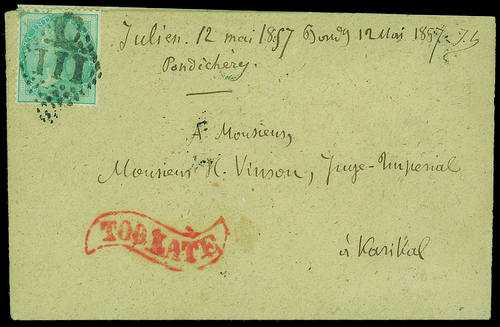 Julien. 12 mai 1857 Pondy 12 Mai 1857. J.
Pondichéry.
111
A Monsieur,
Monsieur H. Vinson, Juge-Impérial
TOO LATE
à Karikal